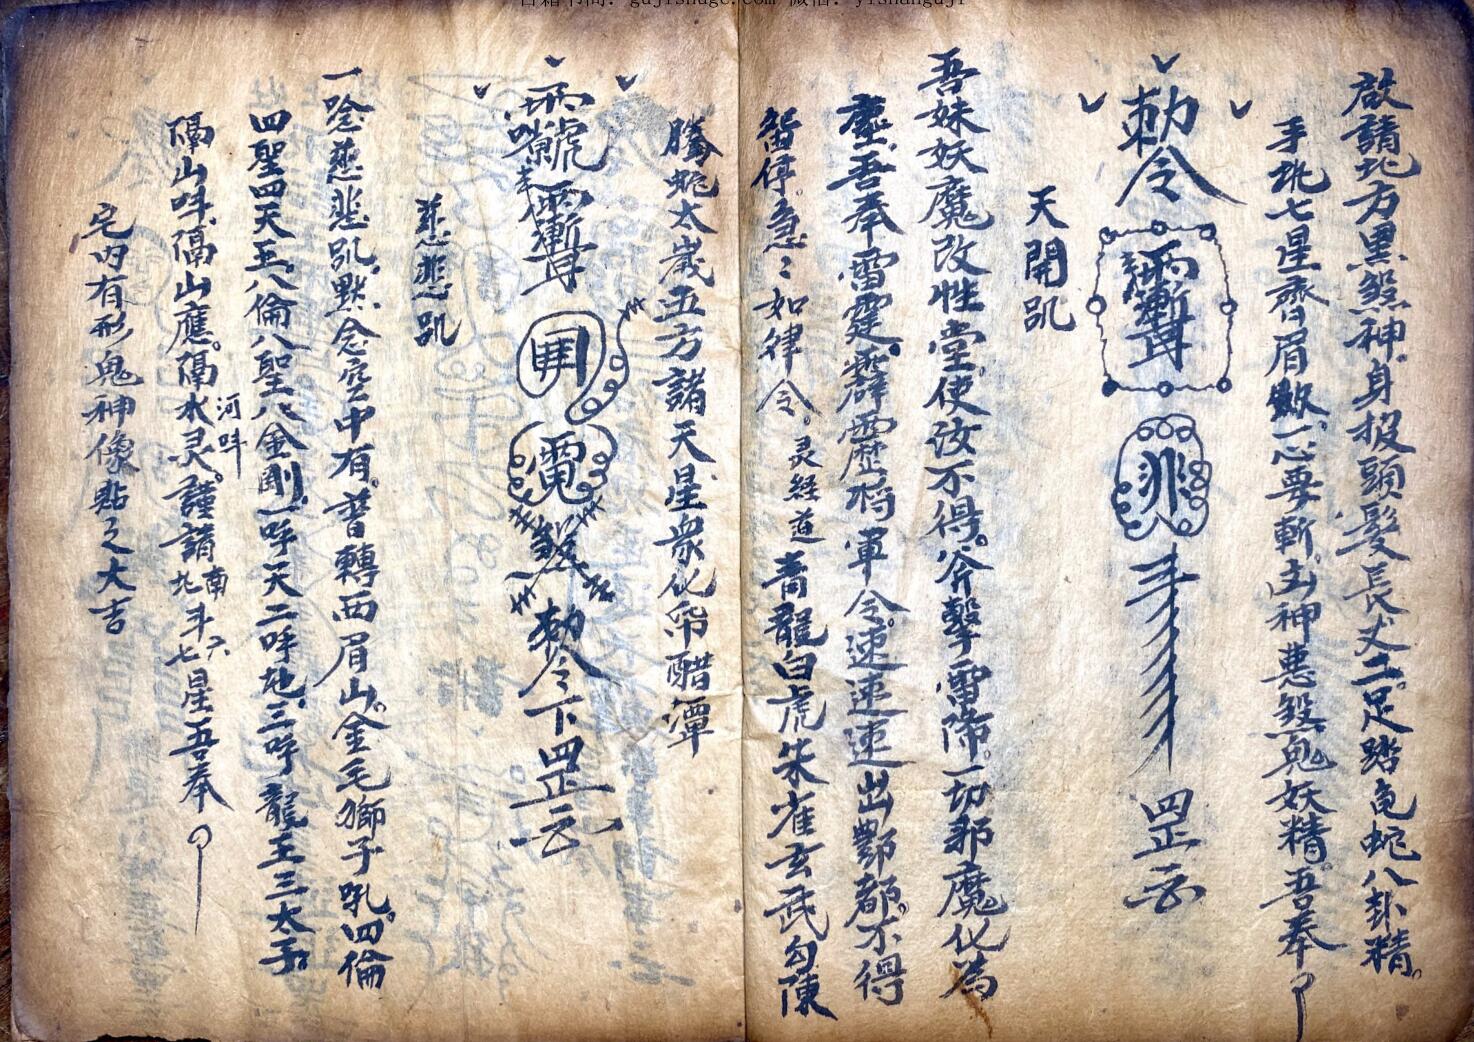 古籍书阁：gujishuge.com 微信：yishanguji
啟請北方黑煞神。身披頭髮長丈二。足踏龟蛇八卦精。
手執七星齊眉劍。一心要斬凶神惡煞鬼妖精。吾奉
勅令
罡云
天開訊
吾妹妖魔改性堂。使汝不得。斧擊雷降。一切邪魔化為
塵。吾奉雷霆霹靂將軍令。速速速出酆都。不得
留停。急〻如律令。灵經道青龍白虎朱雀玄武勾陳
騰蛇太歲五方諸天星衆化帋醋潭
勅令下罡云
慈悲訊
一唸慈悲訊。默念空中有。普轉西眉山。金毛獅子吼。四倫
四聖四天王。八倫八聖八金剛。一呼天二呼地。三呼龍王三太子
隔山呌。隔山應。隔河呌隔水灵。謹請南北斗六七星吾奉
宅内有形鬼神像貼之大吉